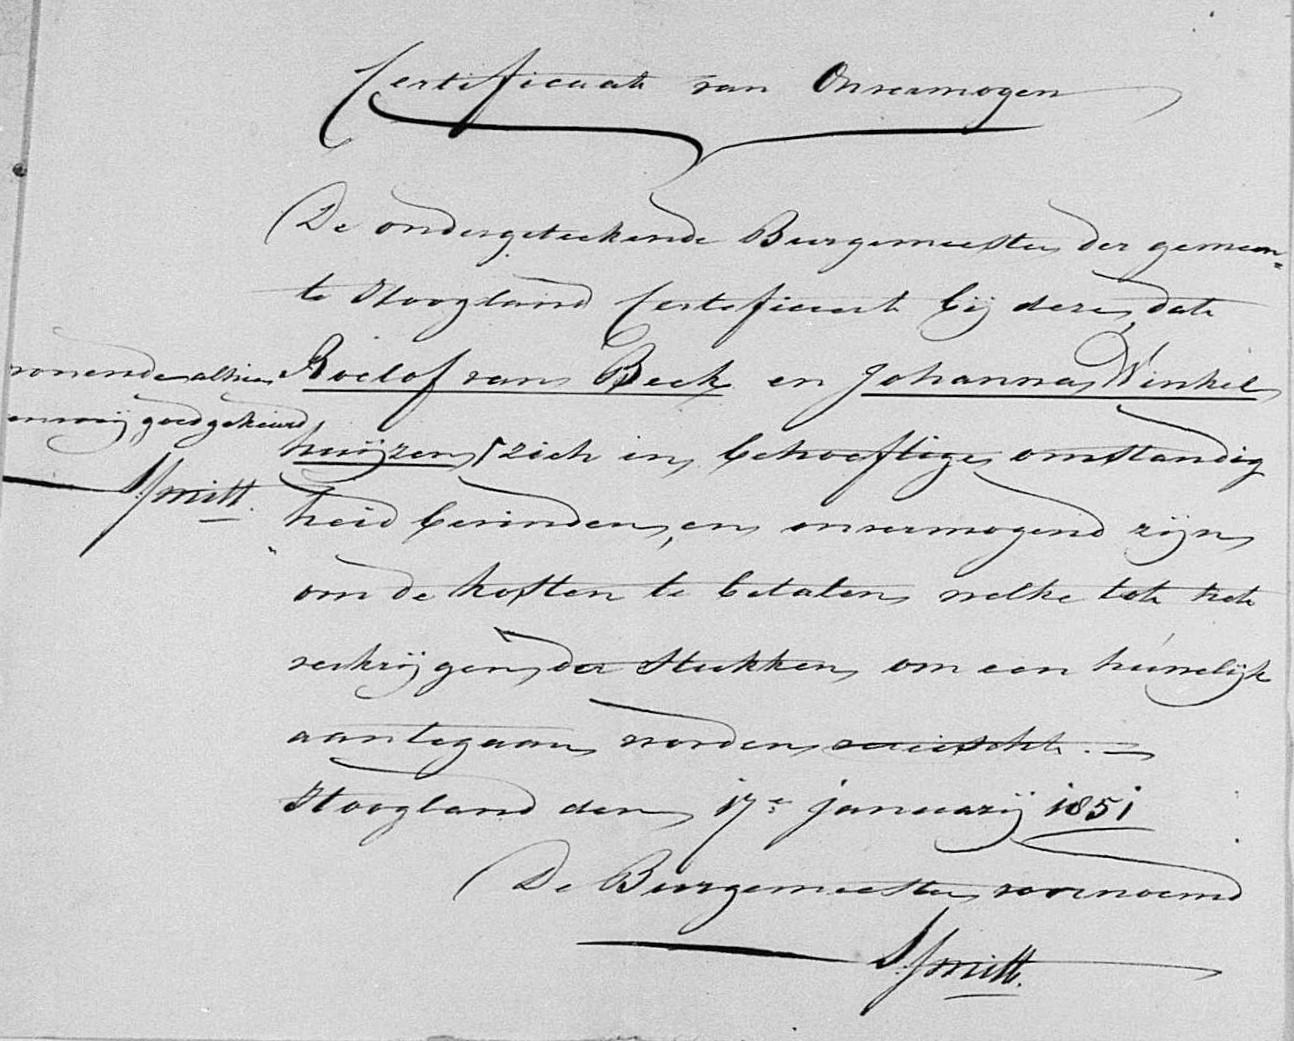 Certificaat van Onvermogen
De ondergeteekende Burgemeester der gemeen-
te Hoogland Certificeert bij deze, dat
Roelof van Beek en Johanna Winkel
huijzen, zich in behoeftige omstandig
heid bevinden, en onvermogend zijn
om de kosten te betalen welke tot het
verkrijgen der stukken om een huwelijk
aantegaan worden vereischt.
Hoogland den 17e januarij 1851
De Burgemeester voornoemd
Smitt.
wonende alhier
goedgekeurd
Smitt.